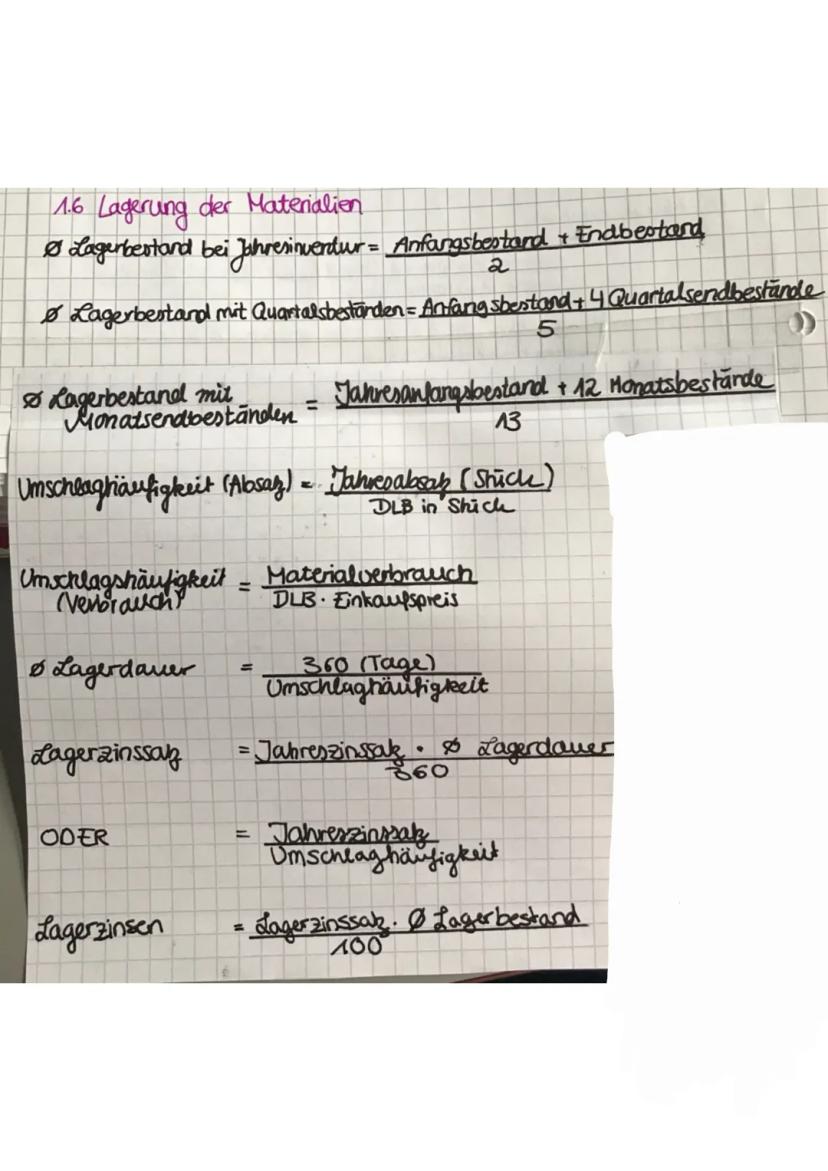 1.6 Lagerung der Materialien
Ø Lagerbestand bei Jahresinventur = Anfangsbestand + Endbestand
2
Ø Lagerbestand mit Quartalsbeständen = Anfangsbestand + 4 Quartalsendbestände
5
Ø Lagerbestand mit
Monatsendbeständen = Jahresanfangsbestand + 12 Monatsbestände
13
Umschlaghäufigkeit (Absatz) = Jahresabsatz (Stück)
DLB in Stück
Umschlagshäufigkeit = Materialverbrauch
(Verbrauch) DLB · Einkaufspreis
Ø Lagerdauer = 360 (Tage)
Umschlaghäufigkeit
Lagerzinssatz = Jahreszinssatz · Ø Lagerdauer
360
ODER = Jahreszinssatz
Umschlaghäufigkeit
Lagerzinsen = Lagerzinssatz · Ø Lagerbestand
100